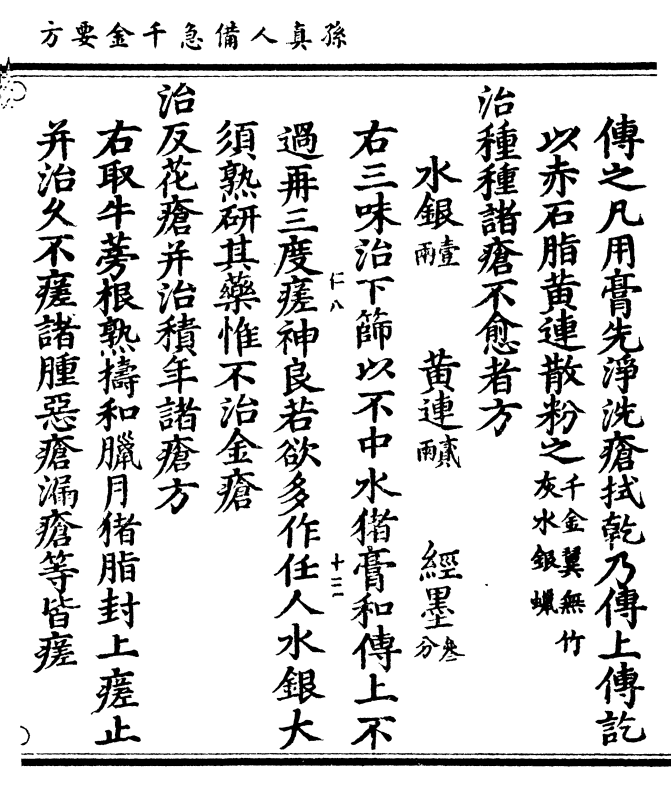 孫真人備急千金要方
傅之凡用膏先淨洗瘡拭乾乃傅上傅訖
以赤石脂黃連散粉之千金翼無竹灰水銀蠟
治種種諸瘡不愈者方
水銀壹兩 黃連貳兩 經墨叁分
右三味治下篩以不中水猪膏和傅上不
過再三度瘥神良若欲多作任人水銀大
仁八
十三二
須熟研其藥惟不治金瘡
治反花瘡并治積年諸瘡方
右取牛蒡根熟擣和臘月猪脂封上瘥止
并治久不瘥諸腫惡瘡漏瘡等皆瘥